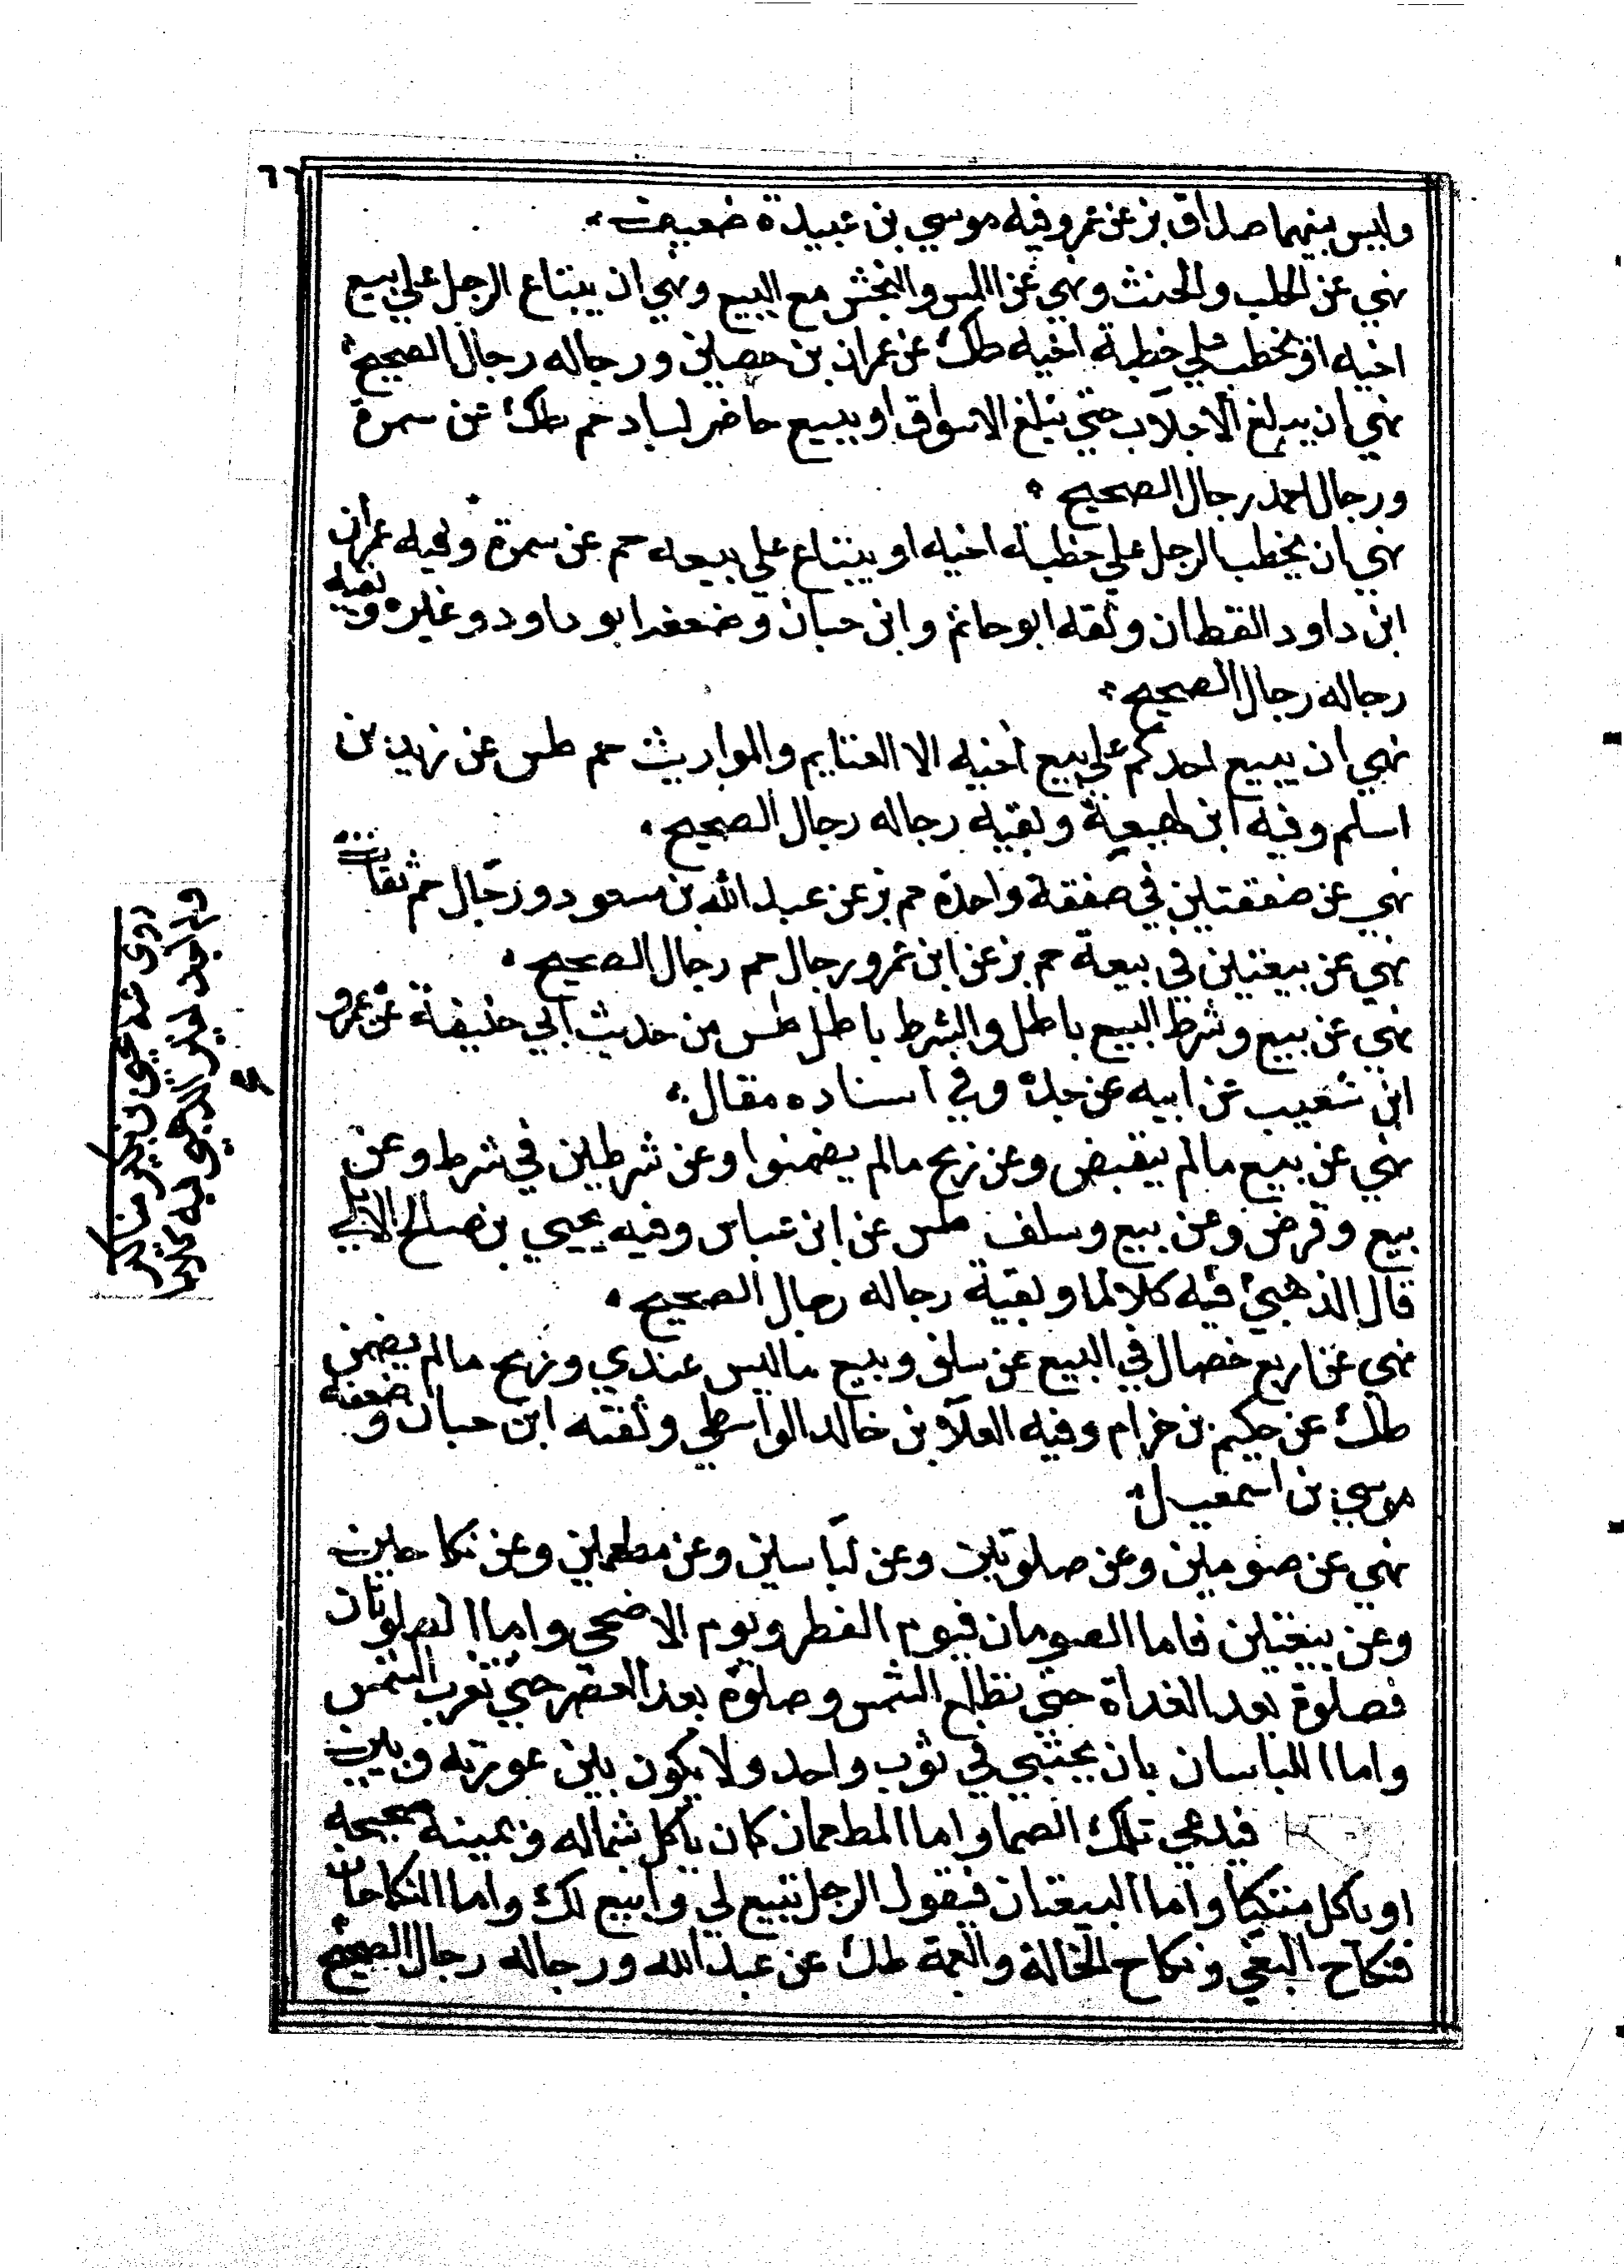 ٦٦
وليس بينهما صداق بز عن عمر وفيه موسي بن عبيدة ضعيف
نهي عن الجلب والجنث ونهي عن اللمس والنجش مع البيع ونهي ان يبتاع الرجل علي بيع
اخيه او يخطب علي خطبة اخيه طك عن عمران بن حصين ورجاله رجال الصحيح
نهي ان يبلغ الاجلاب حتي يبلغ الاسواق او يبيع حاضر لباد حم طك عن سمرة
ورجال احمد رجال الصحيح
نهي ان يخطب الرجل علي خطبة اخيه او يبتاع علي بيعه حم عن سمرة وفيه عمران
ابن داود القطان وثقه ابو حاتم وابن حبان وضعفه ابو داود وغيره وبقيه
رجاله رجال الصحيح
نهي ان يبيع احدكم علي بيع اخيه الا الغنايم والمواريث حم طس عن زيد بن
اسلم وفيه ابن لهيعة وبقيه رجاله رجال الصحيح
نهي عن صفقتين في صفقة واحدة حم بز عن عبد الله بن مسعود ورجال حم ثقات
نهي عن بيعتين في بيعة حم بز عن ابن عمر ورجال حم رجال الصحيح
نهي عن بيع وشرط البيع باطل والشرط باطل طس من حديث ابي حنيفة عن عمرو
ابن شعيب عن ابيه عن جده وفي اسناده مقال
نهي عن بيع مالم يقبض وعن ربح مالم يضمنوا وعن شرطين في شرط وعن
بيع وقرض وعن بيع وسلف طس عن ابن عباس وفيه يحيي بن صالح الايلي
قال الذهبي فيه كلاما وبقية رجاله رجال الصحيح
نهي عن اربع خصال في البيع عن سلف وبيع ماليس عندي وربح مالم يضمن
طك عن حكيم بن حزام وفيه العلاء بن خالد الواسطي وثقه ابن حبان وضعفه
موسي بن اسمعيل
نهي عن صومين وعن صلوتين وعن لباسين وعن مطعمين وعن نكاحين
وعن بيعتين فاما الصومان فيوم الفطر ويوم الاضحي واما الصلوتان
فصلوة بعد الغداة حتي تطلع الشمس وصلوة بعد العصر حتي تغرب الشمس
واما اللباسان بان يحتبي في ثوب واحد ولا يكون بين عورته وبين
فيدعي تلك الصما واما المطعمان كان ياكل بشماله ويمينه صحيحه
او ياكل متكيا واما البيعتان فيقول الرجل تبيع لي وابيع لك واما النكاحان
فنكاح البغي ونكاح الخالة والعمة طك عن عبد الله ورجاله رجال الصحيح